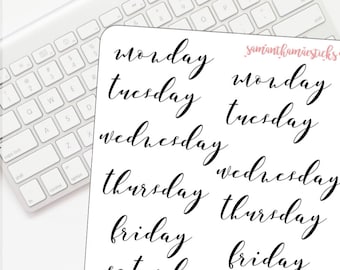 samanthamaesticks
monday monday
tuesday tuesday
wednesday wednesday
thursday thursday
friday friday